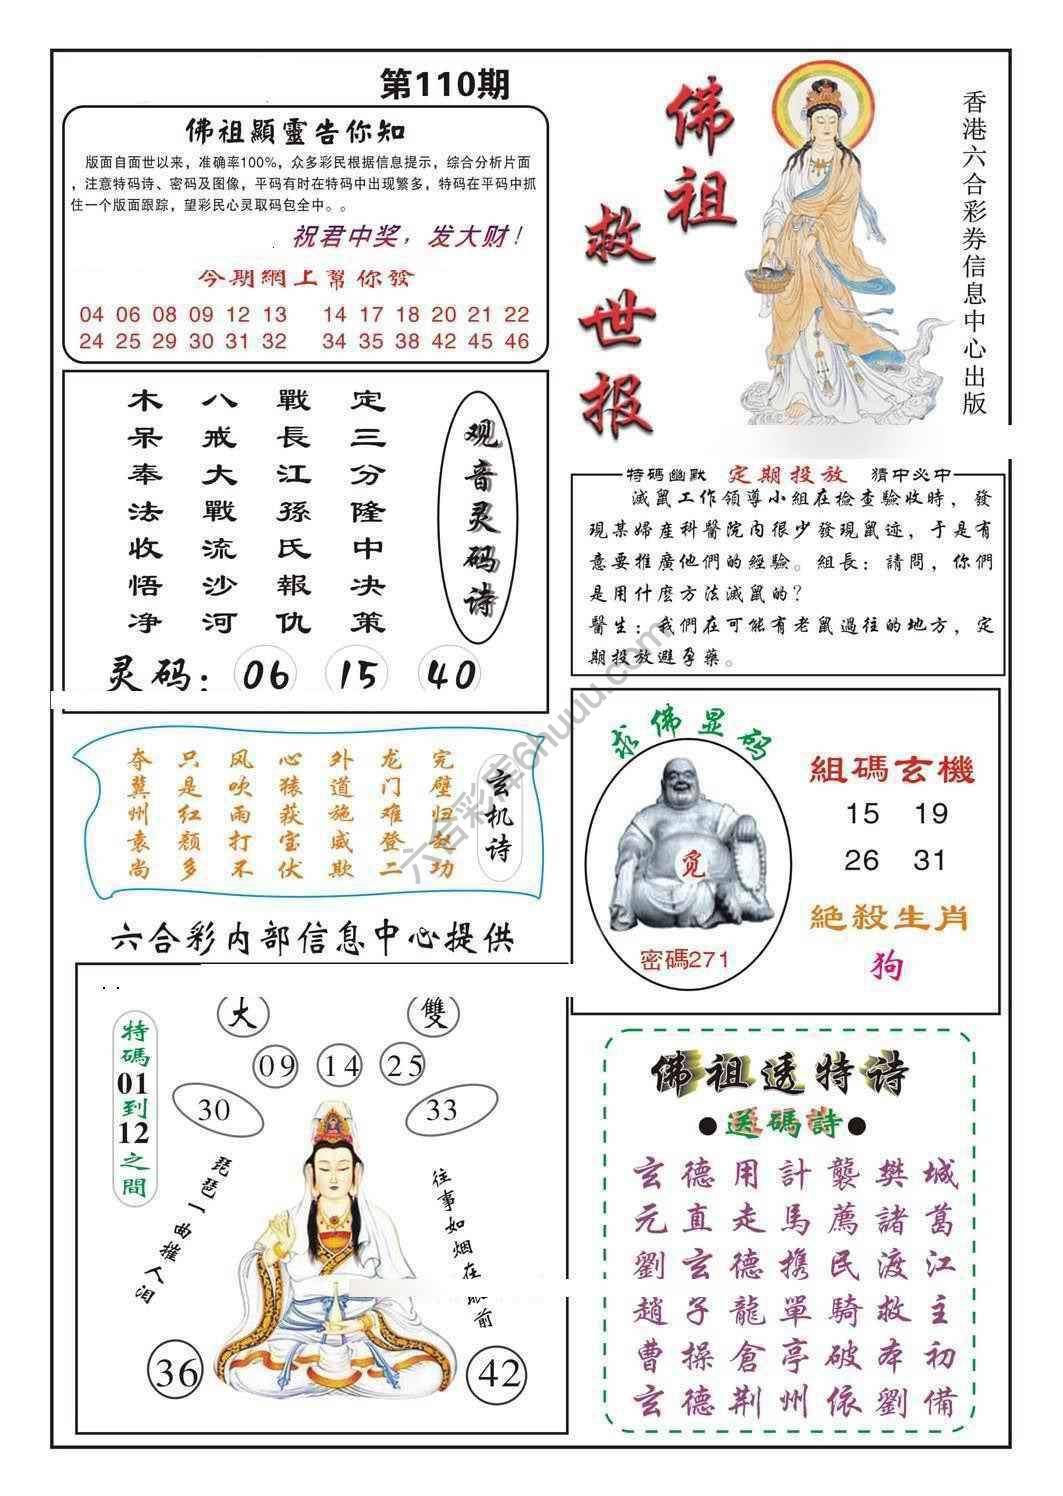 第110期
佛祖顯靈告你知
版面自面世以来，准确率100%，众多彩民根据信息提示，综合分析片面
，注意特码诗、密码及图像，平码有时在特码中出现繁多，特码在平码中抓
住一个版面跟踪，望彩民心灵取码包全中。。
祝君中奖，发大财！
今期網上幫你發
04 06 08 09 12 13 14 17 18 20 21 22
24 25 29 30 31 32 34 35 38 42 45 46
佛祖
救世报
香港六合彩券信息中心出版
观音灵码诗
定三分隆中决策
戰長江孫氏報仇
八戒大戰流沙河
木呆奉法收悟净
灵码：06 15 40
特碼幽默 定期投放 猜中必中
滅鼠工作領導小組在檢查驗收時，發
現某婦産科醫院内很少發現鼠迹，于是有
意要推廣他們的經驗。組長：請問，你們
是用什麽方法滅鼠的？
醫生：我們在可能有老鼠過往的地方，定
期投放避孕藥。
玄机诗
完璧归赵功
龙门难登二
外道施威欺
心猿获宝伏
风吹雨打不
只是红颜多
夺冀州袁尚
求佛显码
觅
密碼271
組碼玄機
15 19
26 31
絶殺生肖
狗
六合彩内部信息中心提供
特碼01到12之間
大 雙
09 14 25
30 33
琵琶一曲摧人泪
往事如烟在眼前
36 42
佛祖透特诗
●送碼詩●
玄德用計襲樊城
元直走馬薦諸葛
劉玄德携民渡江
趙子龍單騎救主
曹操倉亭破本初
玄德荆州依劉備
六合彩库6huuu.com